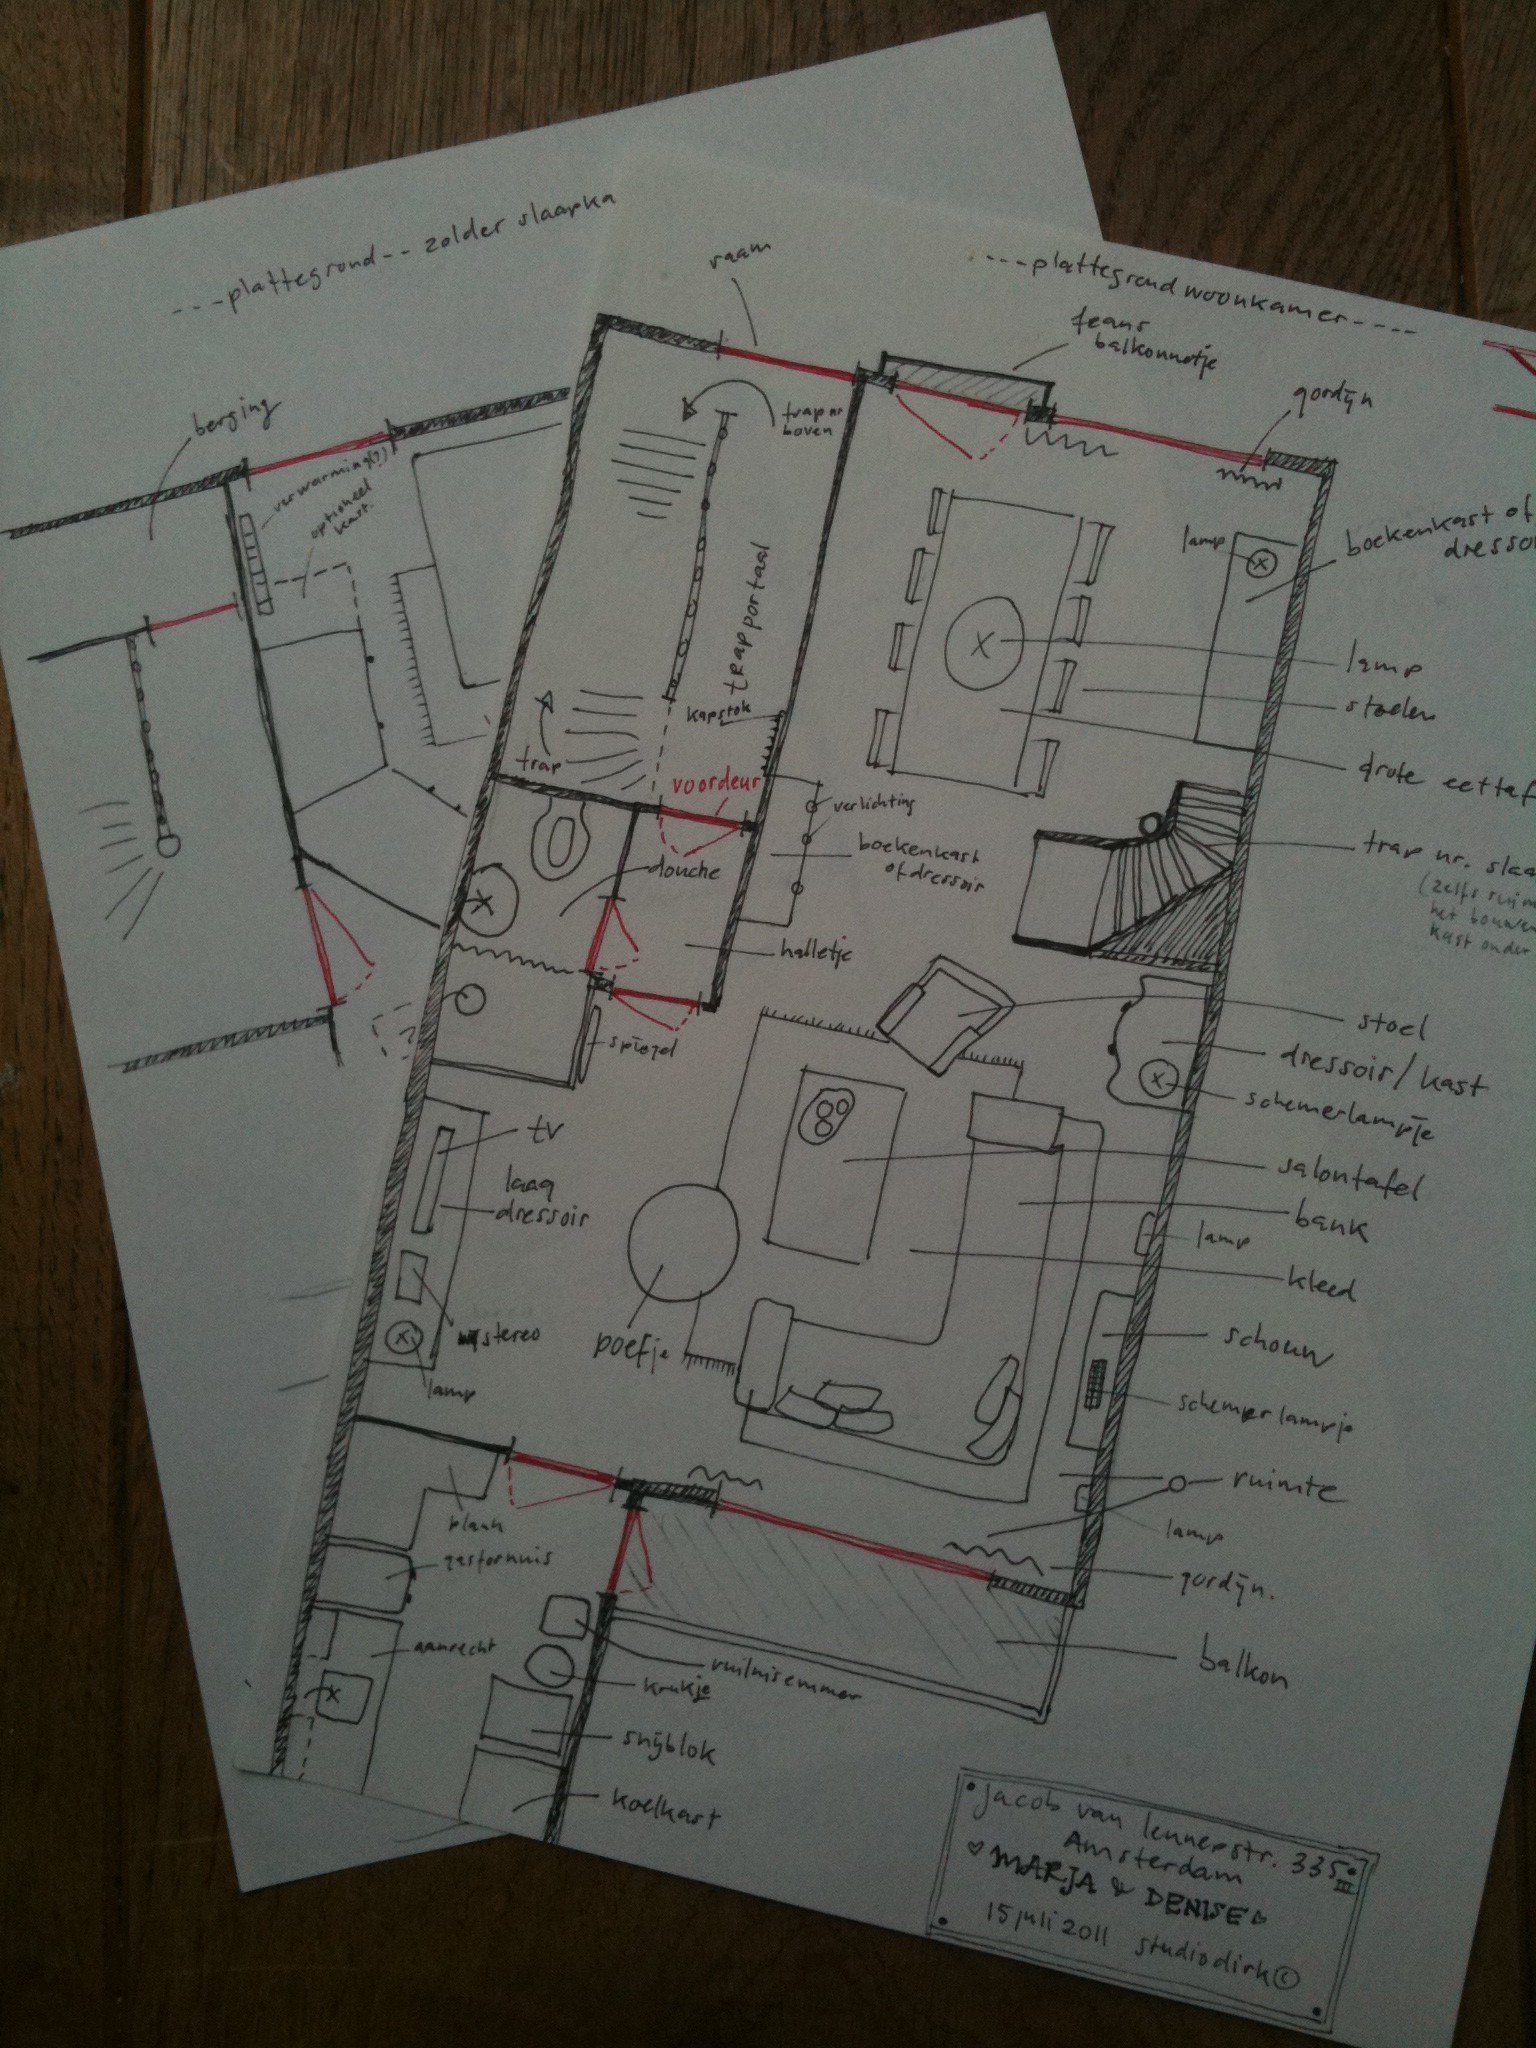 ---plattegrond-- zolder slaapka
berging
verwarming(?)
optioneel
kast.
----plattegrond woonkamer----
raam
frans
balkonnetje
gordijn
trap nr
boven
trapportaal
kapstok
trap
voordeur
lamp
boekenkast of
dressoi
lamp
stoelen
grote eettaf
verlichting
boekenkast
of dressoir
douche
halletje
spiegel
trap nr. slaa
(zelfs ruim
het bouwen
kast onder
stoel
dressoir/kast
schemerlampje
tv
laag
dressoir
stereo
lamp
poefje
salontafel
bank
lamp
kleed
schouw
schemerlampje
ruimte
lamp
gordijn.
balkon
plank
gasfornuis
aanrecht
vuilnisemmer
krukje
snijblok
koelkast
Jacob van Lennepstr. 335 III
Amsterdam
♡ MARJA & DENISE ♡
15 juli 2011 studiodirk©